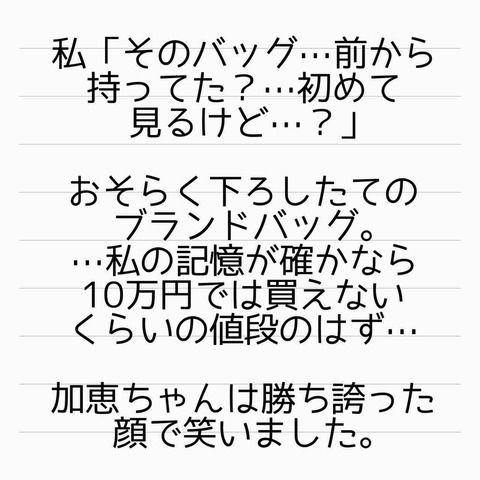 私「そのバッグ…前から
持ってた？…初めて
見るけど…？」
おそらく下ろしたての
ブランドバッグ。
…私の記憶が確かなら
10万円では買えない
くらいの値段のはず…
加恵ちゃんは勝ち誇った
顔で笑いました。